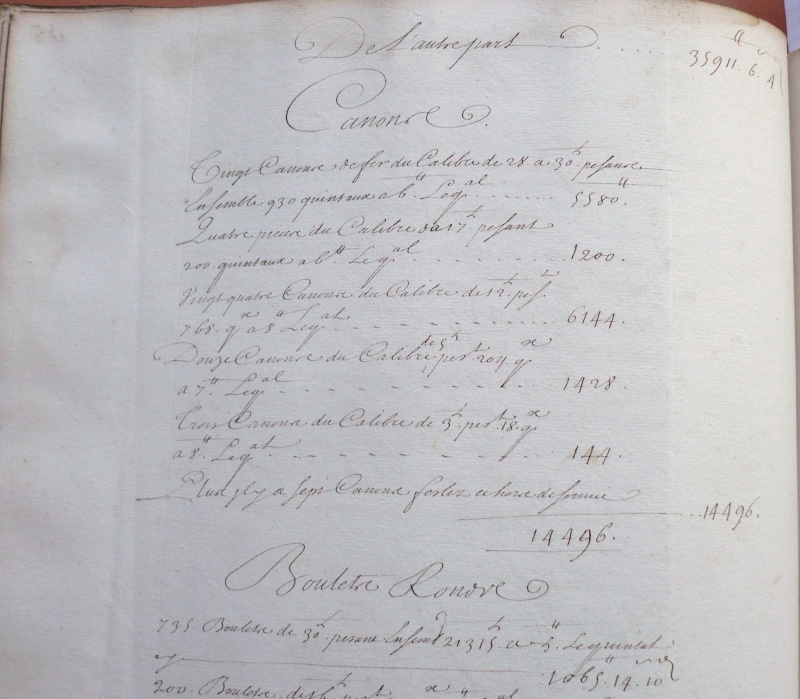 De L'autre part . . . . 35911. 6. 4
Canons.
Vingt Canons de fer du Calibre de 28. a 30.# pesans
Ensemble 930 quintaux a 6.# Le q.al . . . . . 5580.#
Quatre pieces du Calibre de 17.# pesant
200. quintaux a 6.# Le q.al . . . . . 1200.
Vingt quatre Canons du Calibre de 12.# pest.
768. q.x a 8.# Le q.al . . . . . 6144.
Douze Canons du Calibre de 5.# pest. 204. q.x
a 7.# Le q.al . . . . . 1428.
Trois Canons du Calibre de 3.# pest. 18. q.x
a 8.# Le q.al . . . . . 144.
Plus il y a sept Canons et hors de service
14496. 14496.
Boulets Ronds
735. Boulets de 30.# pesant Ensem. 21315.# a 5.# Le quintal
1065.# 14. 10
200. Boulets